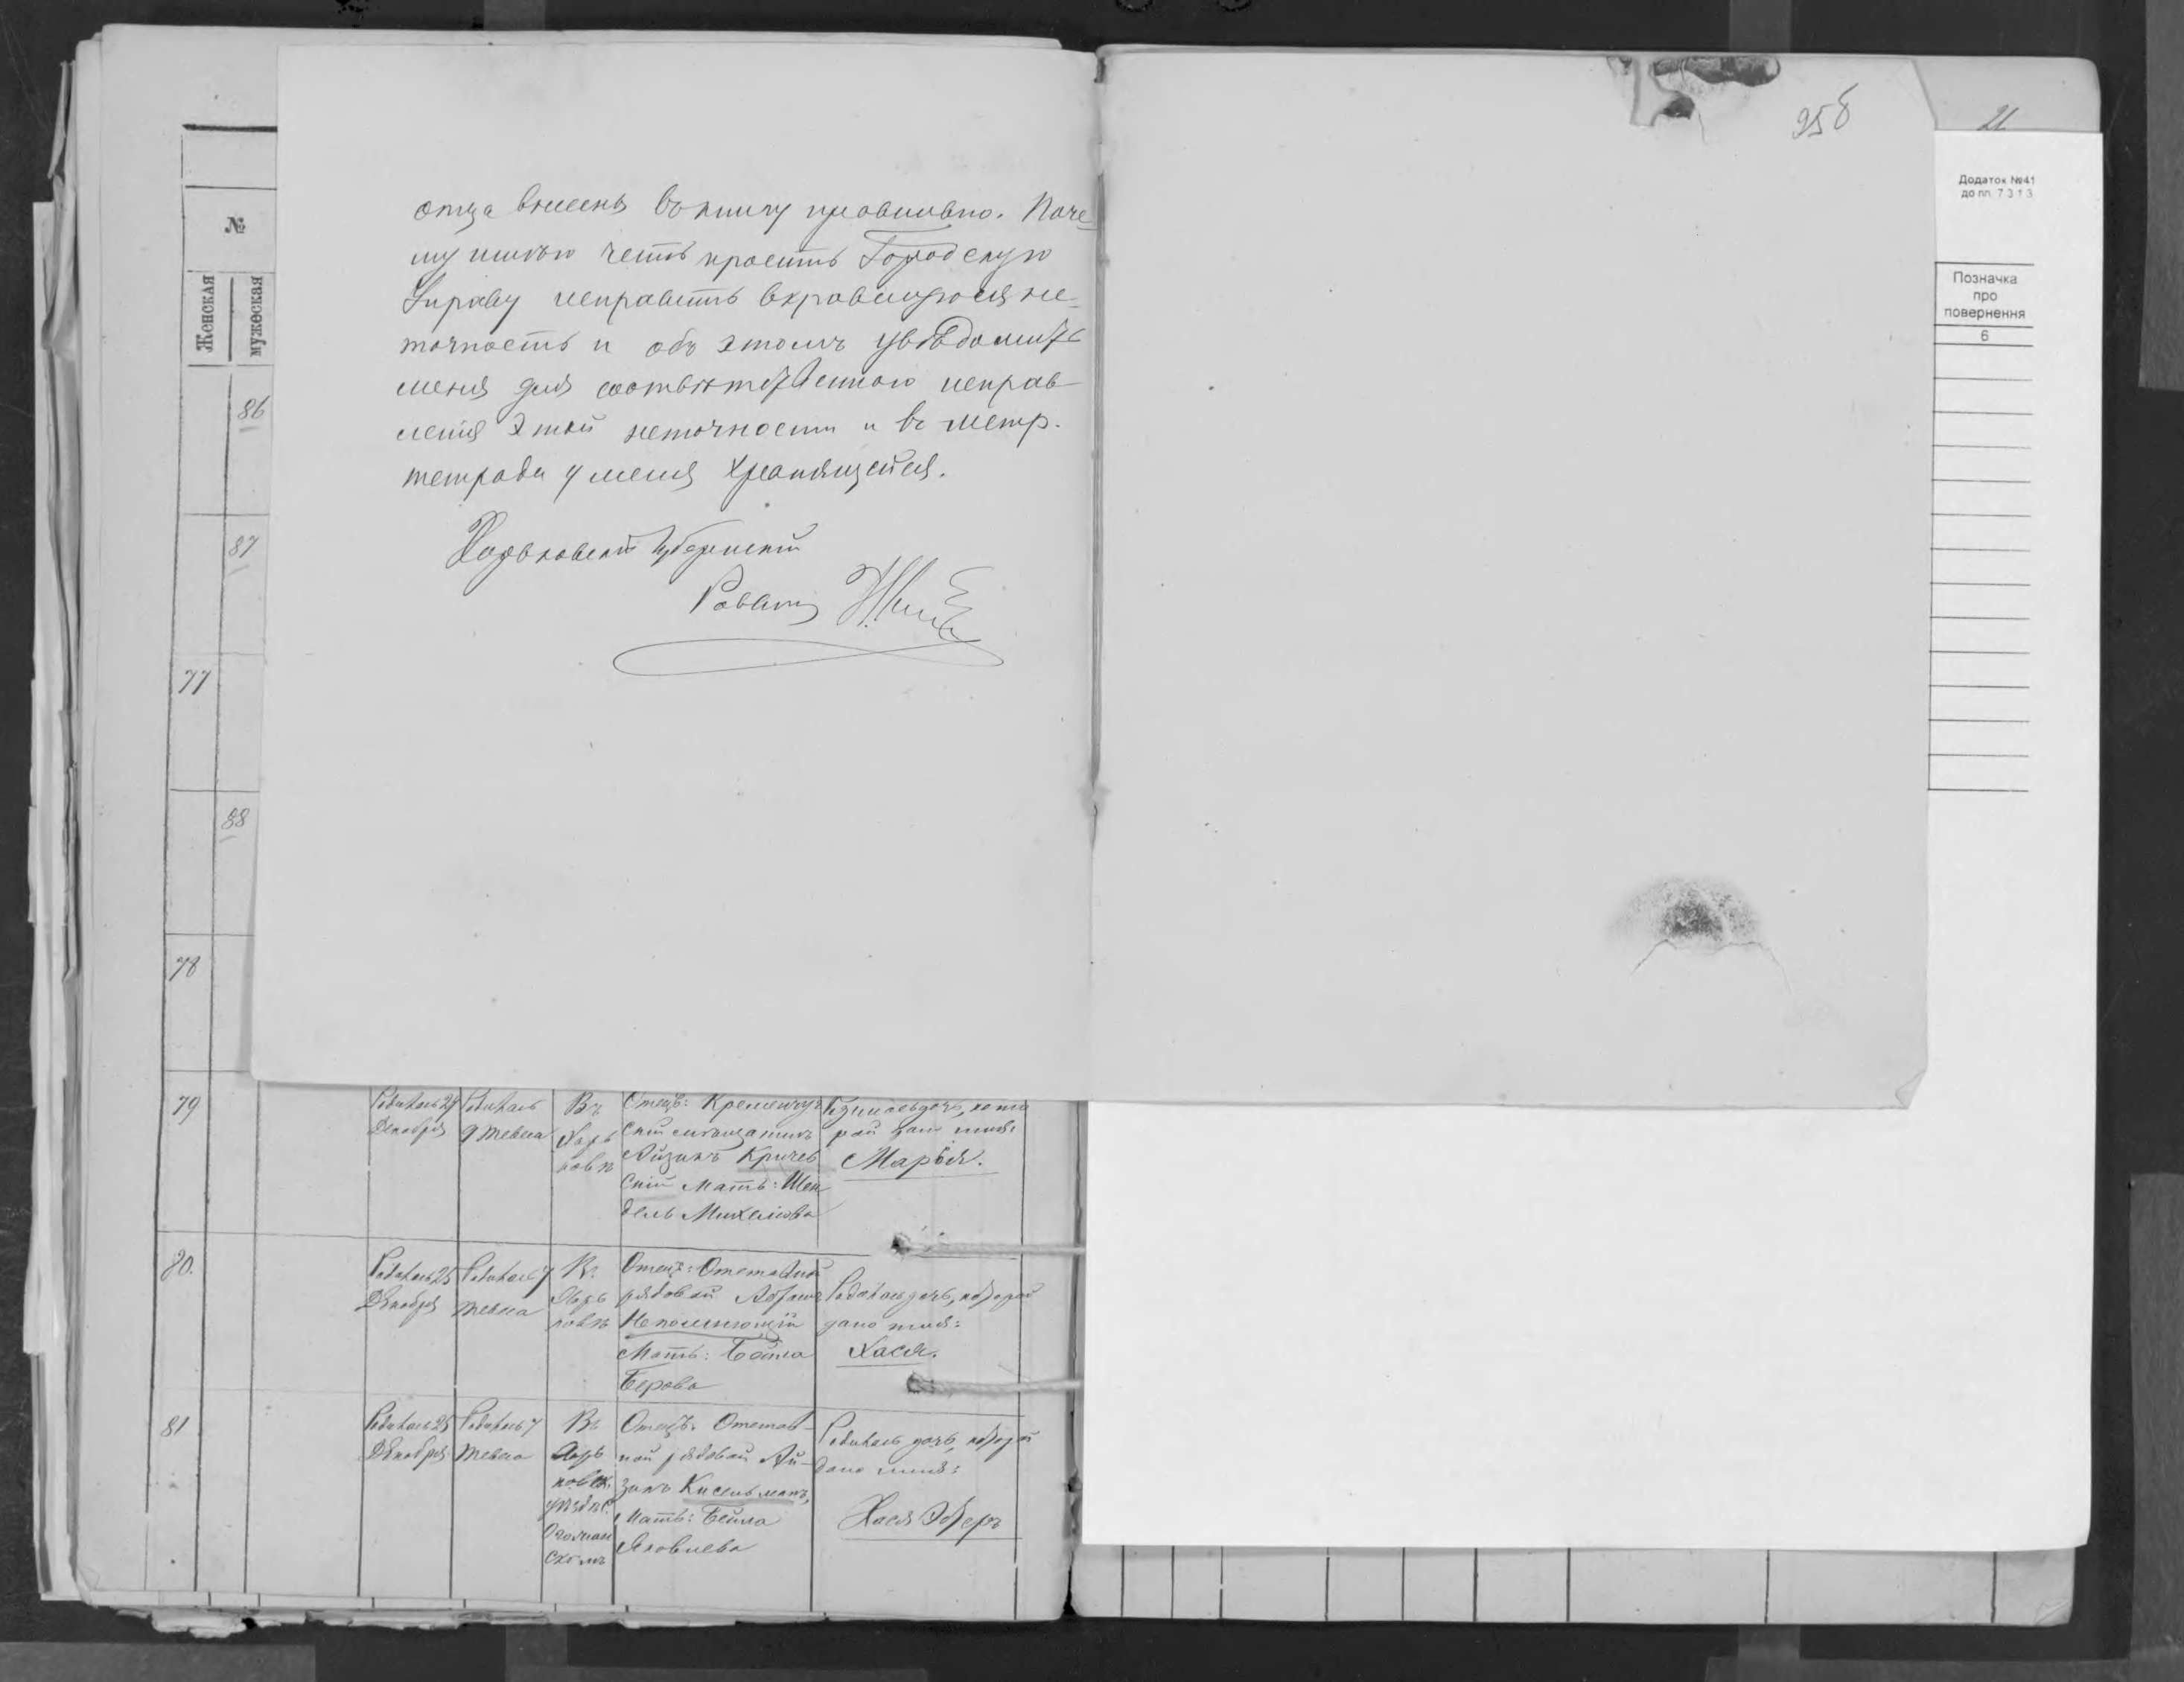 отца внесенъ въ книгу правильно. Поче-
му имѣю честь просить Городскую
Управу исправить вкравшуюся не-
точность и объ этомъ увѣдомить
меня для соотвѣтственного исправ-
ленія этой неточности и въ метр.
тетради у меня хранящейся.
Харьковскій Губернскій
Раввинъ
258
21
Додаток №41
до пп. 7 3 1 3
Позначка
про
повернення
6
№
Женская
мужеская
86
87
77
88
78
79
Родилась 27 Декабря
Родилась 9 Тевеса
Въ Харь ковѣ
Отецъ: Кременчуг
скій мѣщанинъ
Айзикъ Кричев
скій Мать: Шен
дель Михелева
Родилась дочь, кото
рой дано имя:
Марья.
80.
Родилась 25 Декабря
Родилась 7 Тевеса
Въ Харь ковѣ
Отецъ: Отставной
рядовой Абрамъ
Непомнющій
Мать: Бейла
Берова
Родилась дочь, которой
дано имя:
Хася.
81
Родилась 25 Декабря
Родилась 7 Тевеса
Въ Харь ков. уѣздѣ
Отецъ: Отстав-
ной рядовой Ай-
зикъ Кисельманъ,
Мать: Бейла
Яковлева
Родилась дочь, которой
дано имя:
Хася Эстеръ